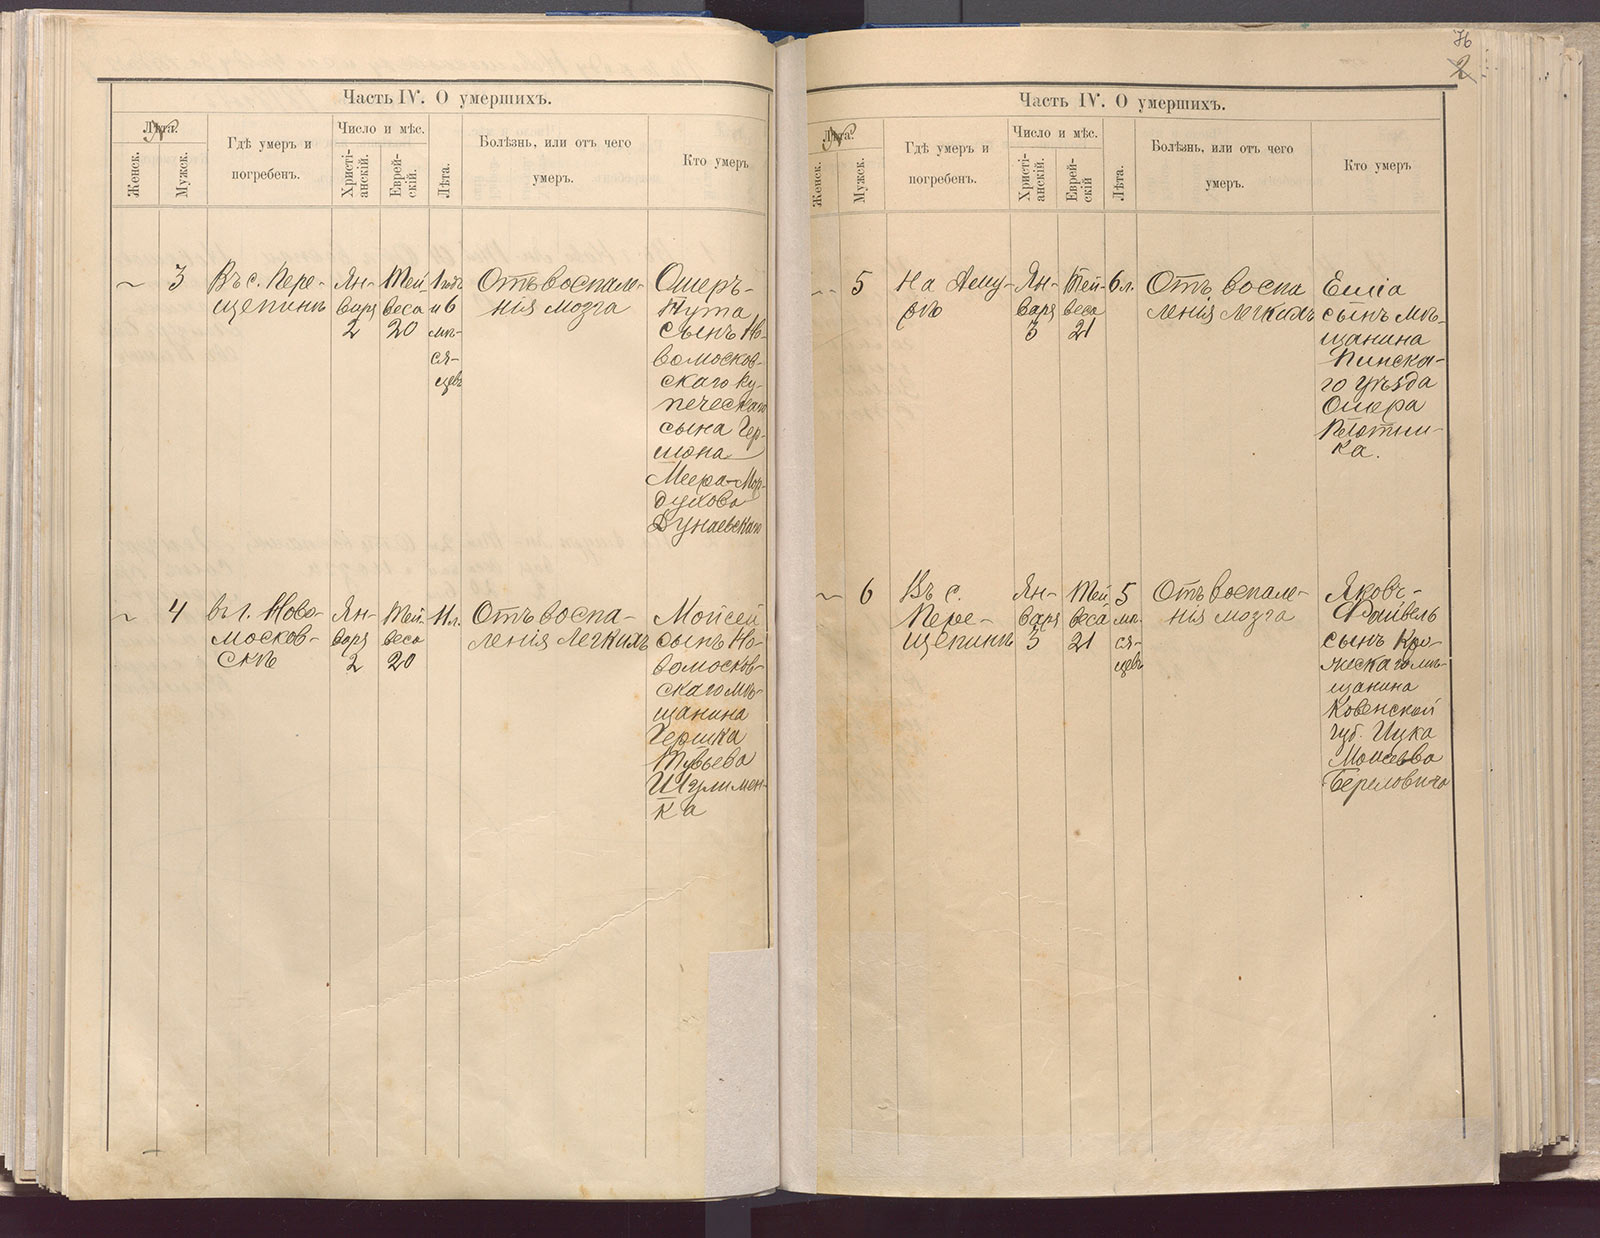 76
2
Часть IV. О умершихъ.
Лѣта.
№
Женск.
Мужск.
Гдѣ умеръ и
погребенъ.
Число и мѣс.
Христі-
анскій.
Еврей-
скій.
Лѣта.
Болѣзнь, или отъ чего
умеръ.
Кто умеръ
3
Въ с. Пере-
щепинѣ
Ян-
варя
2
Тей
веса
20
1 годъ
и 6
мѣ-
ся-
цевъ
Отъ воспале-
нія мозга
Ошеръ-
Нута
сынъ Но-
вомосков-
скаго ку-
печескаго
сына Гер-
шона
Меера-Мор-
духова
Дунаевскаго
4
въ г. Ново-
москов-
скѣ
Ян-
варя
2
Тей
веса
20
11 л.
Отъ воспа-
ленія легкихъ
Мойсей
сынъ Но-
вомосков-
скаго мѣ-
щанина
Гершка
Тувьева
Шулимен-
ка
Часть IV. О умершихъ.
Лѣта.
№
Женск.
Мужск.
Гдѣ умеръ и
погребенъ.
Число и мѣс.
Христі-
анскій.
Еврей-
скій
Лѣта.
Болѣзнь, или отъ чего
умеръ.
Кто умеръ
5
На Аму-
рѣ
Ян-
варя
3
Тей-
веса
21
6 л.
Отъ воспа
ленія легкихъ
Еліа
сынъ мѣ-
щанина
Пинска-
го уѣзда
Ошера
Плотни-
ка.
6
Въ с.
Пере-
щепинѣ
Ян-
варя
3
Тей
веса
21
5
мѣ-
ся-
цевъ
Отъ воспале-
нія мозга
Яковъ-
сынъ
мѣ-
щанина
Ковенской
губ. Ицка
Моисеева
Береловича